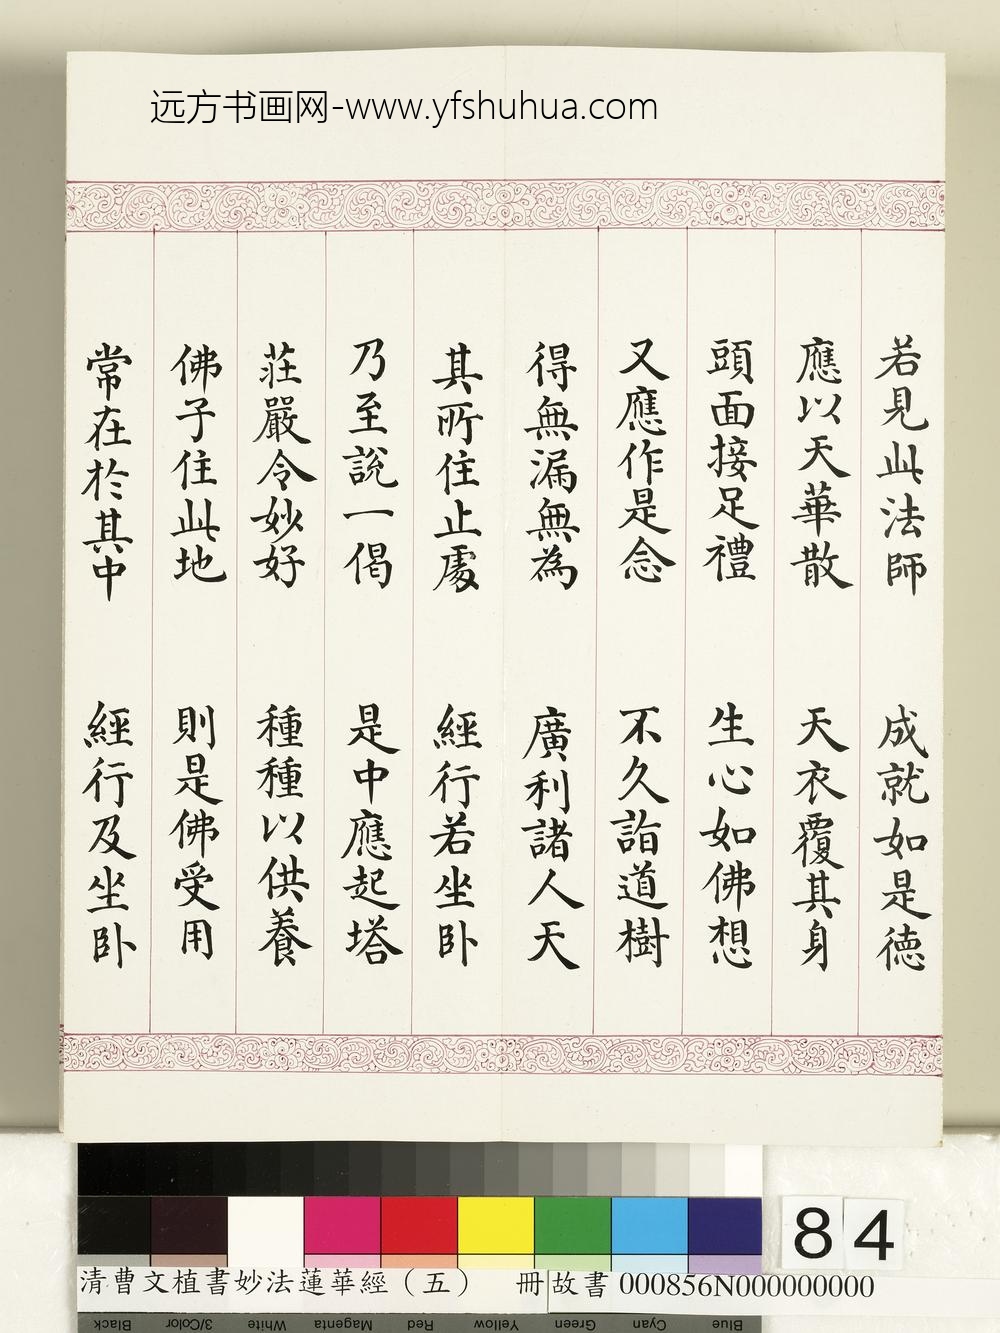 远方书画网-www.yfshuhua.com
若見此法師　成就如是德
應以天華散　天衣覆其身
頭面接足禮　生心如佛想
又應作是念　不久詣道樹
得無漏無為　廣利諸人天
其所住止處　經行若坐卧
乃至說一偈　是中應起塔
莊嚴令妙好　種種以供養
佛子住此地　則是佛受用
常在於其中　經行及坐卧
84
清曹文植書妙法蓮華經（五）　冊 故書 000856N000000000
Black 3/Color White Magenta Red Yellow Green Cyan Blue